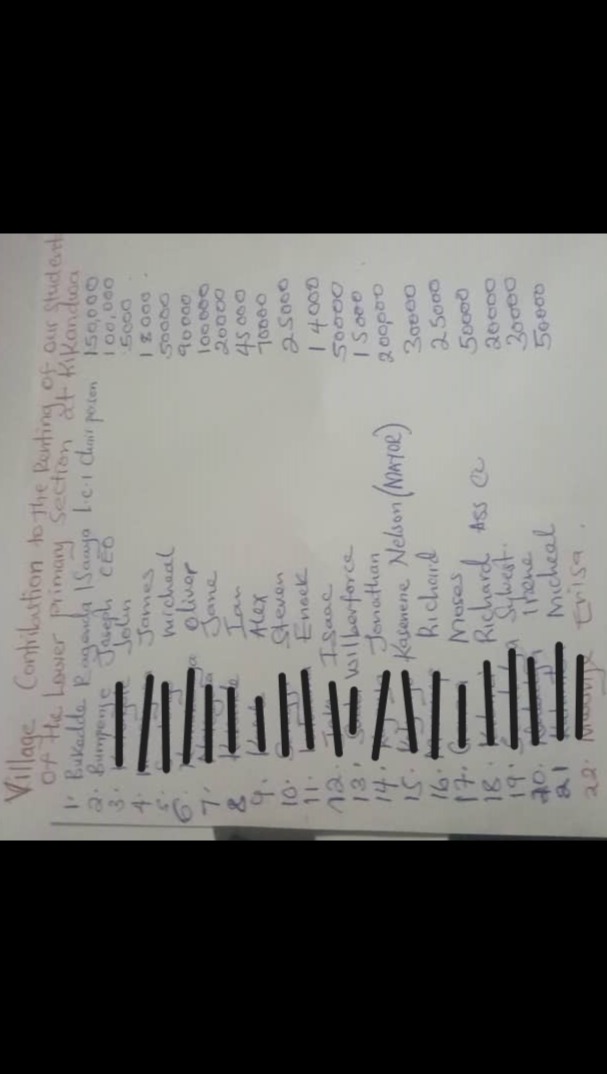 Village Contribution to the Renting of our student
of the Lower primary Section at Kikandwa
1. Bukadde Ragenda Isanga L.C.1 Chair person 150,000
2. Bumpenje Joseph CEO 100,000
3. John 5000
4. James 18000.
5. micheal 50000
6. Oliver 90000
7. Jane 100000
8 Ian 20000
45000
9. Alex 70000
10. Steven 25000
11. Enock 14000
12. Isaac 50000
13. Wilberforce 15000
14. Jonathan 200000
15. Kasenene Nelson (MAYOR) 30000
16. Richard 25000
17. Moses 50000
18. Richard Ass 20000
19. Sylvest. 30000
20. Irene 50000
21 Micheal
22. Erisa.